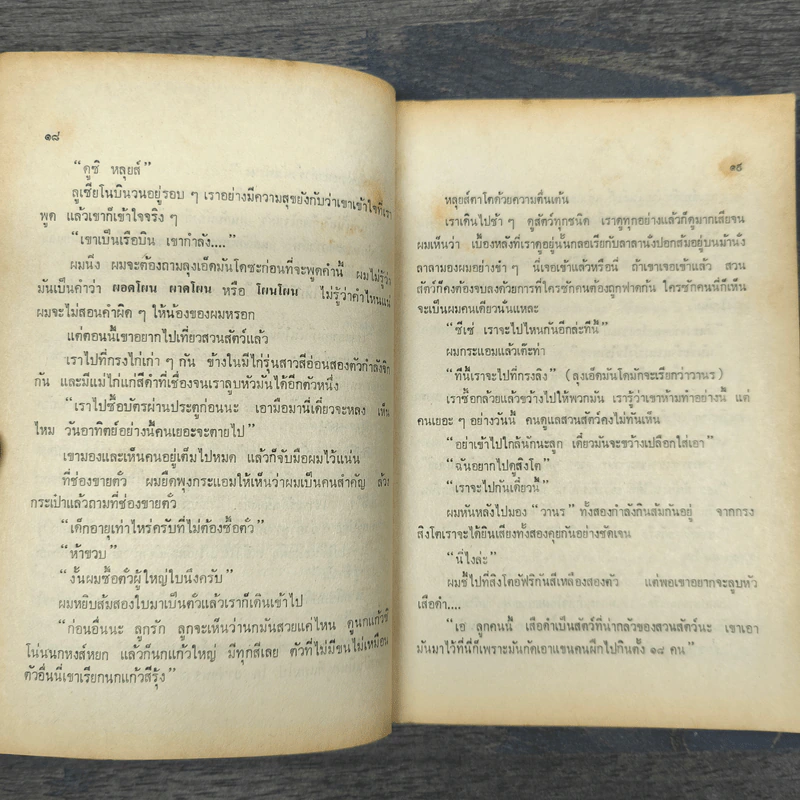 ๑๘
“ดูซิ หลุยส์”
ลูเซียโนบินวนอยู่รอบ ๆ เราอย่างมีความสุขยังกับว่าเขาเข้าใจที่เรา
พูด แล้วเขาก็เข้าใจจริง ๆ
“เขาเป็นเรือบิน เขากำลัง....”
ผมนิ่ง ผมจะต้องถามลุงเอ็ดมันโดซะก่อนที่จะพูดคำนี้ ผมไม่รู้ว่า
มันเป็นคำว่า ผอดโผน ผาดโผน หรือ โผนโผน ไม่รู้ว่าคำไหนแน่
ผมจะไม่สอนคำผิด ๆ ให้น้องของผมหรอก
แต่ตอนนี้เขาอยากไปเที่ยวสวนสัตว์แล้ว
เราไปที่กรงไก่เก่า ๆ กัน ข้างในมีไก่รุ่นสาวสีอ่อนสองตัวกำลังจิก
กัน และมีแม่ไก่แก่สีดำที่เชื่องจนเราลูบหัวมันได้อีกตัวหนึ่ง
“เราไปซื้อบัตรผ่านประตูก่อนนะ เอามือมานี่เดี๋ยวจะหลง เห็น
ไหม วันอาทิตย์อย่างนี้คนเยอะจะตายไป”
เขามองและเห็นคนอยู่เต็มไปหมด แล้วก็จับมือผมไว้แน่น
ที่ช่องขายตั๋ว ผมยืดพุงกระแอมให้เห็นว่าผมเป็นคนสำคัญ ล้วง
กระเป๋าแล้วถามที่ช่องขายตั๋ว
“เด็กอายุเท่าไหร่ครับที่ไม่ต้องซื้อตั๋ว”
“ห้าขวบ”
“งั้นผมซื้อตั๋วผู้ใหญ่ใบนึงครับ”
ผมหยิบส้มสองใบมาเป็นตั๋วแล้วเราก็เดินเข้าไป
“ก่อนอื่นนะ ลูกรัก ลูกจะเห็นว่านกมันสวยแค่ไหน ดูนกแก้วซิ
โน่นนกหงส์หยก แล้วก็นกแก้วใหญ่ มีทุกสีเลย ตัวที่ไม่มีขนไม่เหมือน
ตัวอื่นนี่เขาเรียกนกแก้วสีรุ้ง”
๑๙
หลุยส์ตาโตด้วยความตื่นเต้น
เราเดินไปช้า ๆ ดูสัตว์ทุกชนิด เราดูทุกอย่างแล้วก็ดูมากเสียจน
ผมเห็นว่า เบื้องหลังที่เราดูอยู่นั้นกลอเรียกับลาลานั่งปอกส้มอยู่บนม้านั่ง
ลาลามองผมอย่างขำ ๆ นี่เจอเข้าแล้วหรือนี่ ถ้าเขาเจอเข้าแล้ว สวน
สัตว์ก็คงต้องจบลงด้วยการที่ใครซักคนต้องถูกฟาดก้น ใครซักคนนี่ก็เห็น
จะเป็นผมคนเดียวนั่นแหละ
“ซีเซ่ เราจะไปไหนกันอีกล่ะทีนี้”
ผมกระแอมแล้วเต๊ะท่า
“ทีนี้เราจะไปที่กรงลิง” (ลุงเอ็ดมันโดมักจะเรียกว่าวานร)
เราซื้อกล้วยแล้วขว้างไปให้พวกมัน เรารู้ว่าเขาห้ามทำอย่างนี้ แต่
คนเยอะ ๆ อย่างวันนี้ คนดูแลสวนสัตว์คงไม่ทันเห็น
“อย่าเข้าไปใกล้นักนะลูก เดี๋ยวมันจะขว้างเปลือกใส่เอา”
“ฉันอยากไปดูสิงโต”
“เราจะไปกันเดี๋ยวนี้”
ผมหันหลังไปมอง “วานร” ทั้งสองกำลังกินส้มกันอยู่ จากกรง
สิงโตเราจะได้ยินเสียงทั้งสองคุยกันอย่างชัดเจน
“นี่ไงล่ะ”
ผมชี้ไปที่สิงโตอัฟริกันสีเหลืองสองตัว แต่พอเขาอยากจะลูบหัว
เสือดำ....
“เอ ลูกคนนี้ เสือดำเป็นสัตว์ที่น่ากลัวของสวนสัตว์นะ เขาเอา
มันมาไว้ที่นี่ก็เพราะมันกัดเอาแขนคนฝึกไปกินตั้ง ๑๘ คน”